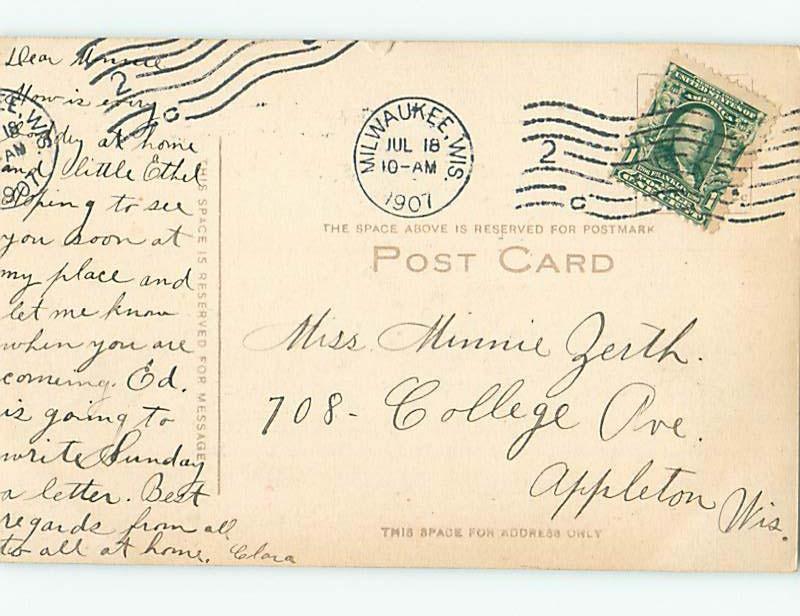 Dear Minnie
How is every
body at home
and little Ethel
hoping to see
you soon at
my place and
let me know
when you are
comeing. Ed.
is going to
write Sunday
a letter. Best
regards from all
to all at home. Clara
THIS SPACE IS RESERVED FOR MESSAGE
MILWAUKEE, WIS.
JUL 18
10-AM
1907
2
C
2
C
UNITED STATES OF
AMERICA
THE SPACE ABOVE IS RESERVED FOR POSTMARK
POST CARD
Miss Minnie Zerth.
708- College Ave.
Appleton Wis.
THIS SPACE FOR ADDRESS ONLY